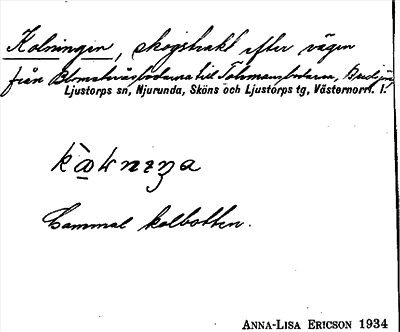 Kolningen, skogstrakt efter vägen
från till
Ljustorps sn, Njurunda, Sköns och Ljustorps tg, Västernorrl. l.
Gammal kolbotten.
ANNA-LISA ERICSON 1934